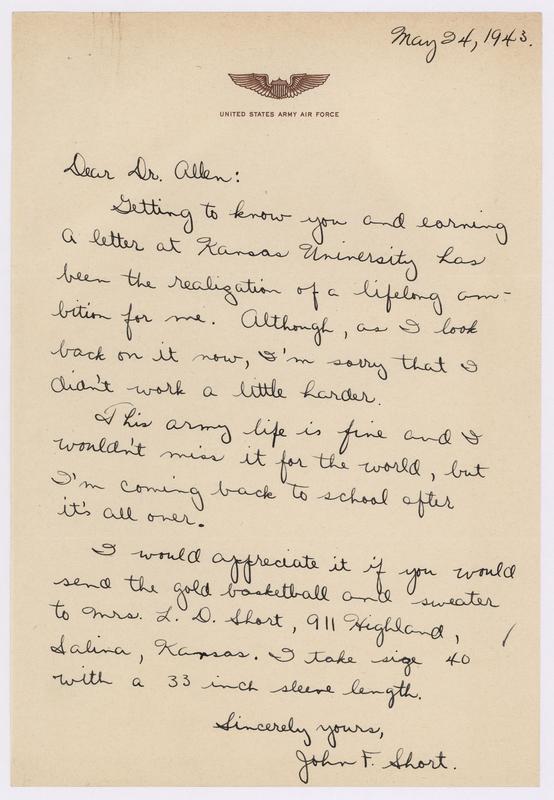 May 24, 1943.
UNITED STATES ARMY AIR FORCE
Dear Dr. Allen:
Getting to know you and earning
a letter at Kansas University has
been the realization of a lifelong am-
bition for me. Although, as I look
back on it now, I'm sorry that I
didn't work a little harder.
This army life is fine and I
wouldn't miss it for the world, but
I'm coming back to school after
it's all over.
I would appreciate it if you would
send the gold basketball and sweater
to Mrs. L. D. Short, 911 Highland,
Salina, Kansas. I take size 40
with a 33 inch sleeve length.
Sincerely yours,
John F. Short.